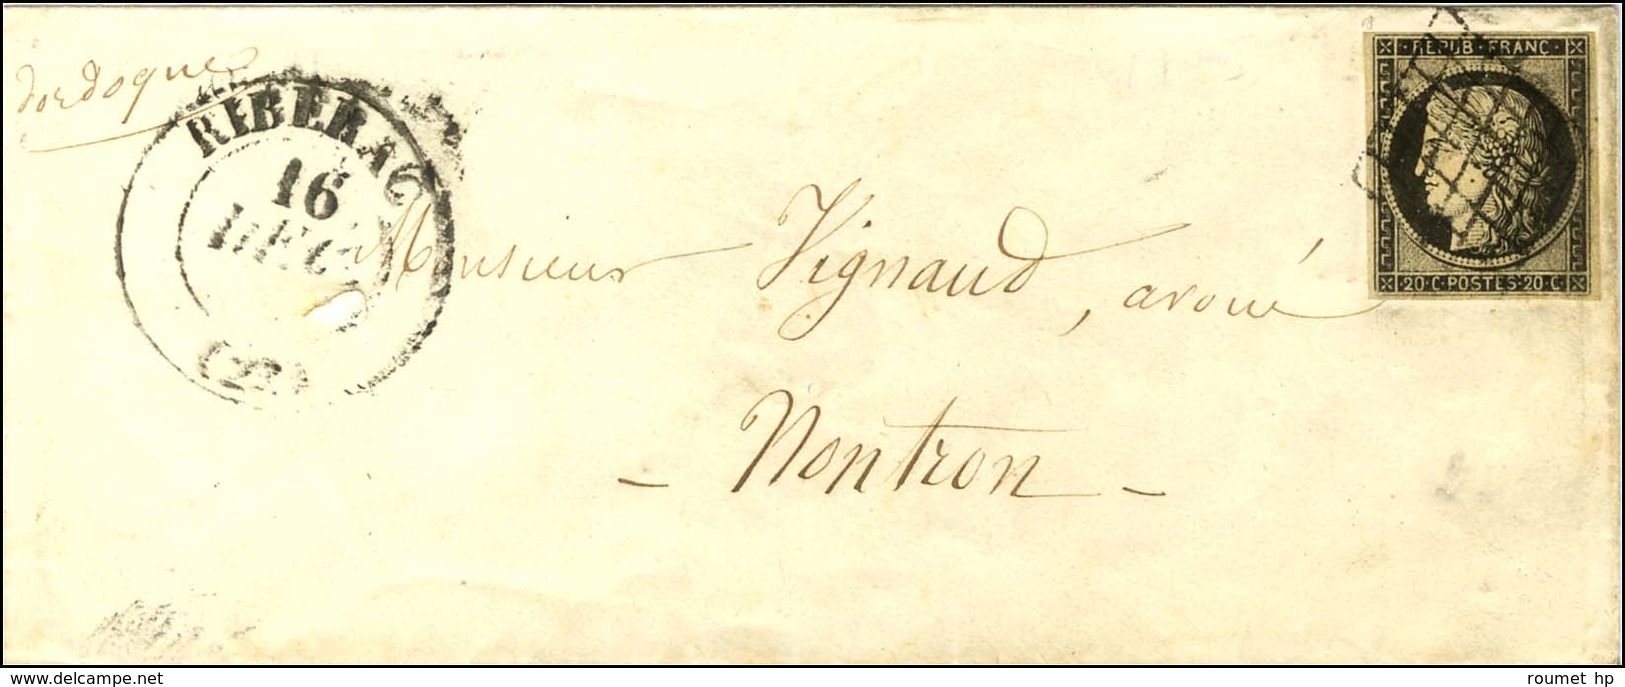 dordogne
RIBERAC
16
DEC.
(23)
REPUB FRANC
20·C·POSTES·20·C
Monsieur Vignaud, avoué
- Nontron -
www.delcampe.net
roumet hp